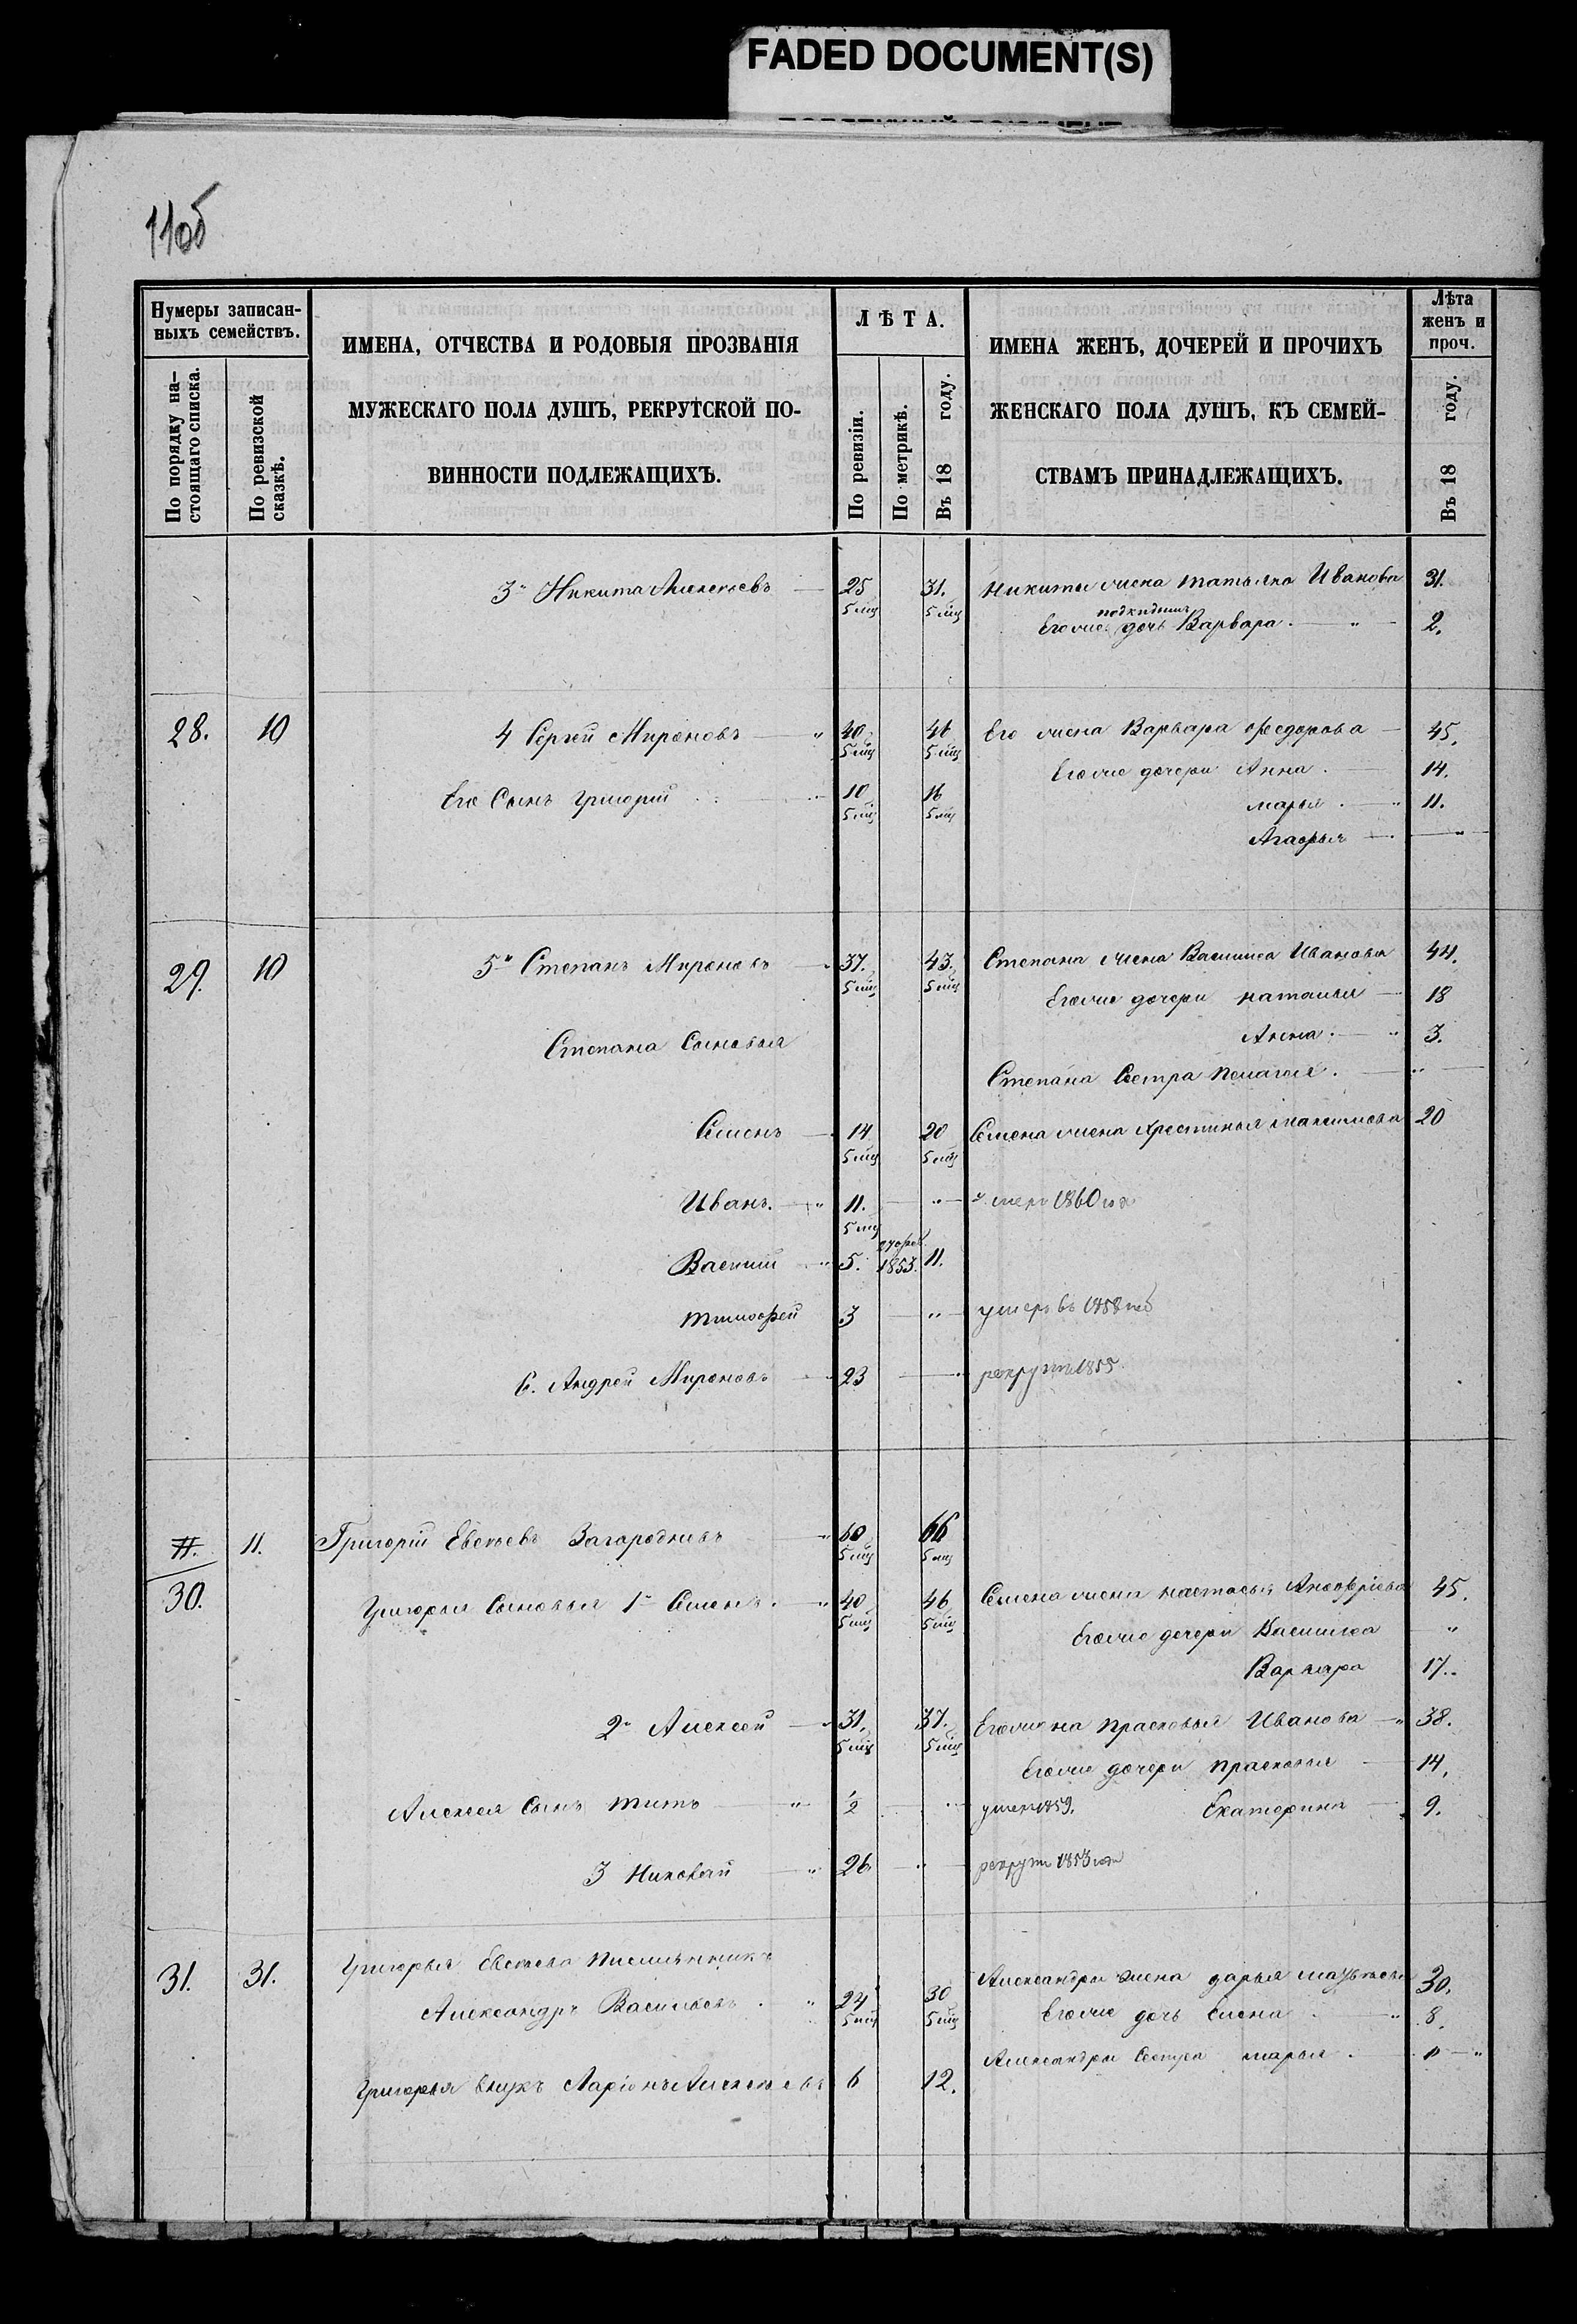 FADED DOCUMENT(S)
11об
Нумеры записан-
ныхъ семействъ.
По порядку на-
стоящаго списка.
По ревизской
сказкѣ.
ИМЕНА, ОТЧЕСТВА И РОДОВЫЯ ПРОЗВАНІЯ
МУЖЕСКАГО ПОЛА ДУШЪ, РЕКРУТСКОЙ ПО-
ВИННОСТИ ПОДЛЕЖАЩИХЪ.
ЛѢТА.
По ревизіи.
По метрикѣ.
Въ 18 году.
ИМЕНА ЖЕНЪ, ДОЧЕРЕЙ И ПРОЧИХЪ
ЖЕНСКАГО ПОЛА ДУШЪ, КЪ СЕМЕЙ-
СТВАМЪ ПРИНАДЛЕЖАЩИХЪ.
Лѣта
женъ и
проч.
Въ 18 году.
3й Никита Алексѣевъ 25 5 мц 31. 5 мц Никиты жена Татьяна Иванова 31.
подкидыш
Егоже дочь Варвара 2.
28. 10 4 Сергей Мироновъ 40 5 мц 46 5 мц Его жена Варвара Федорова 45.
Егоже дочери Анна 14.
Его Сынъ Григорий 10 5 мц 16 5 мц марья 11.
Агафья "
29. 10 5й Степанъ Мироновъ 37. 5 мц 43. 5 мц Степана жена Василиса Иванова 44.
Егоже дочери наталья 18
Анна 3.
Степана Сыновья
Степана Сестра Пелагея "
Семенъ 14 5 мц 20 5 мц Семена жена Хрестинья Максимова 20
Иванъ 11. 5 мц " умеръ 1860 год
Василий 5. 27 фев. 1853. 11.
тимофей 3 " умеръ въ 1858 год
6. Андрей Мироновъ 23 " рекрутъ 1855
11. 11. Григорій Евсѣевъ Загороднивъ 60 5 мц 66 5 мц
30. Григорья Сыновья 1й Семенъ 40 5 мц 46 5 мц Семена жена настасья Анофріева 45.
Егоже дочери Василиса "
Варвара 17.
2й Алексей 31. 5 мц 37. 5 мц Его жена прасковья Иванова 38.
Егоже дочери прасковья 14.
Алексея Сынъ титъ 1/2 " умер 1859. Екатерина 9.
3 Николай 26 " рекрутъ 1853 год
31. 31. Григорья Евсѣева
Александръ Васильевъ 24 5 мц 30 5 мц Александра жена дарья 30.
Егоже дочь Елена 8.
Александра Сестра марья "
Григорья внукъ Ларіонъ Алексѣевъ 6 12.